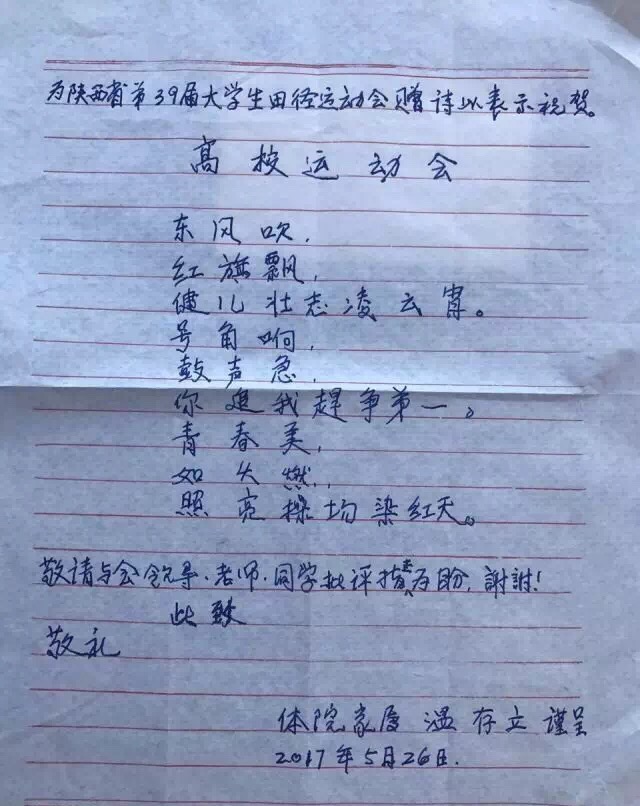 为陕西省第39届大学生田径运动会赠诗以表示祝贺。
高校运动会
东风吹,
红旗飘,
健儿壮志凌云宵。
号角响,
鼓声急,
你追我趕争第一。
青春美,
如火燃,
照亮操场染红天。
敬请与会领导、老师、同学批评指教为盼,謝謝!
此致
敬礼
体院家属 温存立 謹呈
2017年5月26日.